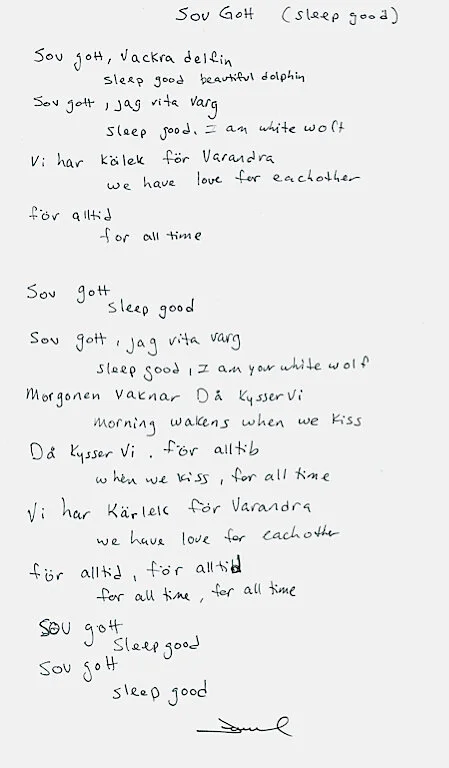 Sov Gott (sleep good)
Sov gott, Vackra delfin
sleep good beautiful dolphin
Sov gott, jag vita varg
sleep good. I am white wolf
Vi har Kälek för Varandra
we have love for eachother
för alltid
for all time
Sov gott
Sleep good
Sov gott, jag vita varg
sleep good, I am your white wolf
Morgonen Vaknar Då Kysser Vi
morning wakens when we kiss
Då Kysser Vi. för alltib
when we kiss, for all time
Vi har Kärlek för Varandra
we have love for eachother
för alltid, för alltid
for all time, for all time
SOV gott
Sleep good
Sov gott
sleep good